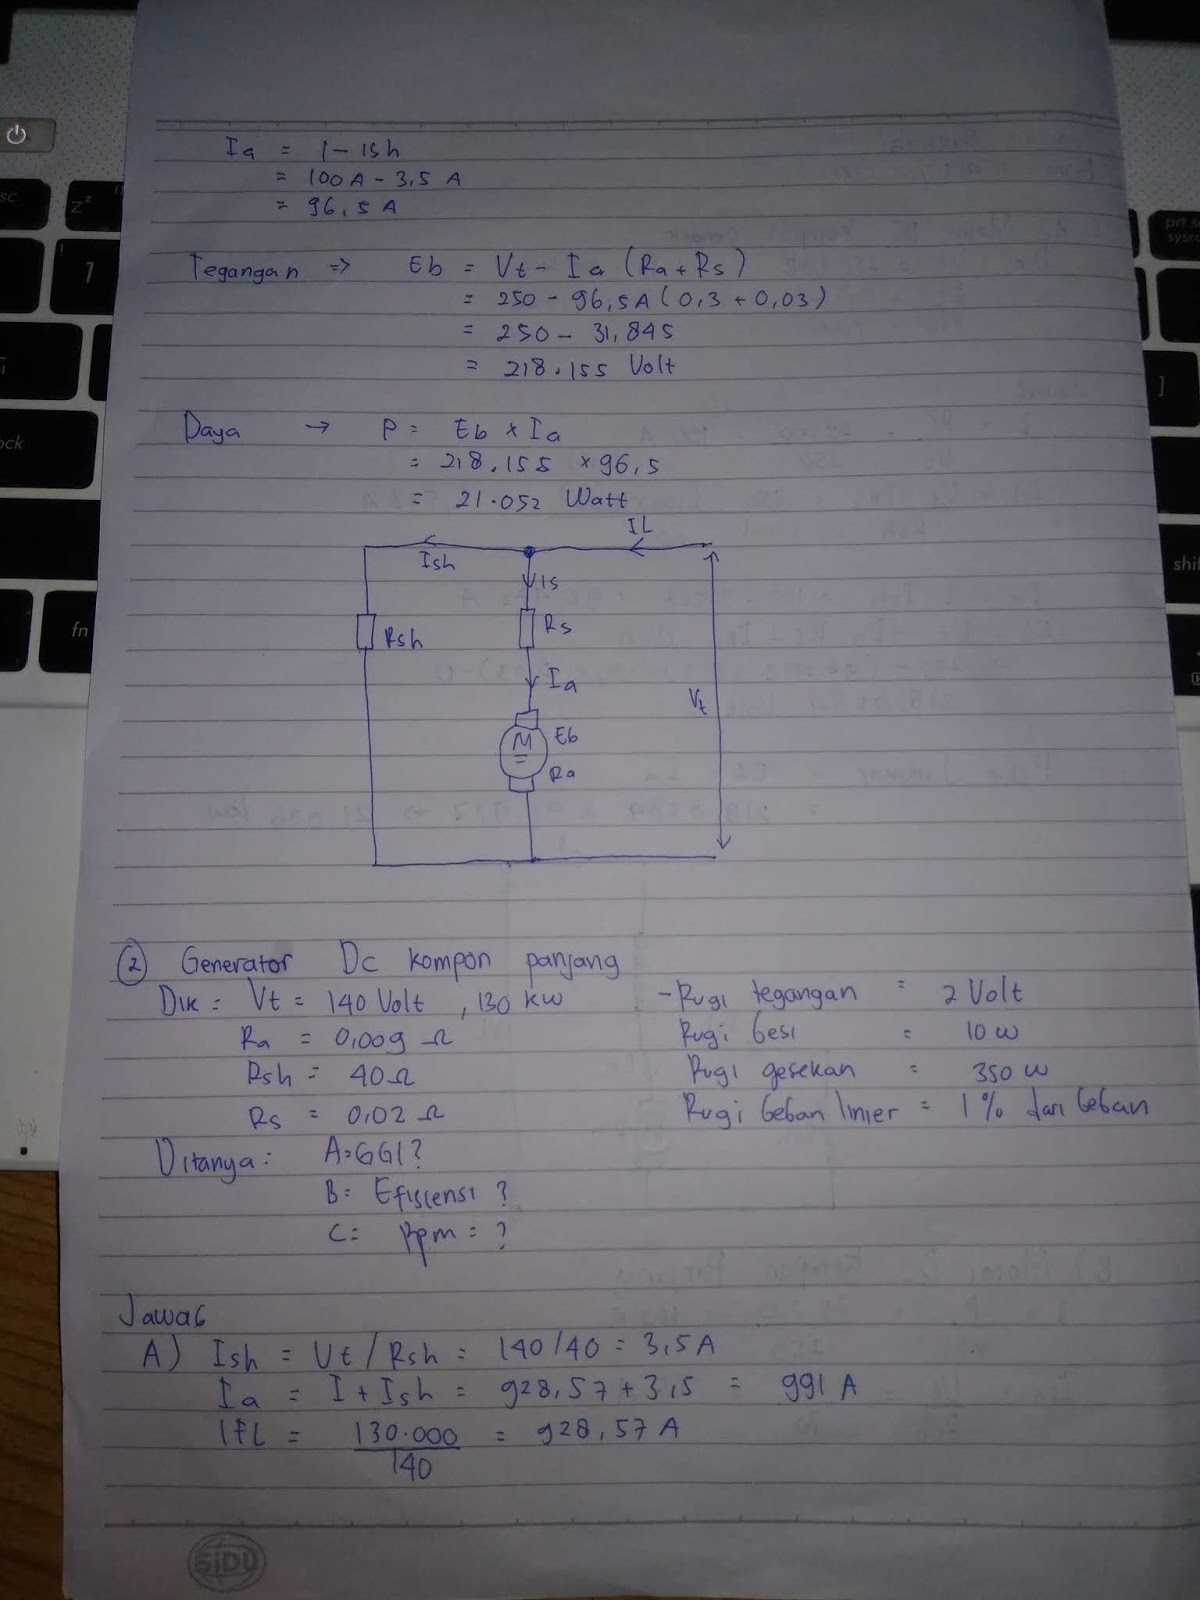 Ia = I - Ish
= 100A - 3,5 A
= 96,5 A
Tegangan => Eb = Vt - Ia (Ra + Rs)
= 250 - 96,5A (0,3 + 0,03)
= 250 - 31,845
= 218.155 Volt
Daya → P = Eb x Ia
= 218.155 x 96,5
= 21.052 Watt
IL
Ish
Is
Rsh
Rs
Ia
Vt
M
Eb
Ra
② Generator Dc kompon panjang
Dik = Vt = 140 Volt , 130 kw
- Rugi tegangan = 2 Volt
Ra = 0,009 Ω
Rugi besi = 10 w
Rsh = 40 Ω
Rugi gesekan = 350 w
Rs = 0,02 Ω
Rugi beban linier = 1 % dari beban
Ditanya : A = GGI ?
B = Efisiensi ?
C = Rpm = ?
Jawab
A) Ish = Vt / Rsh = 140/40 = 3,5 A
Ia = I + Ish = 928,57 + 3,5 = 991 A
Ifl = 130.000 / 140 = 928,57 A
SiDU
esc
zz
1
fn
prt sc
sysrq
]
shift